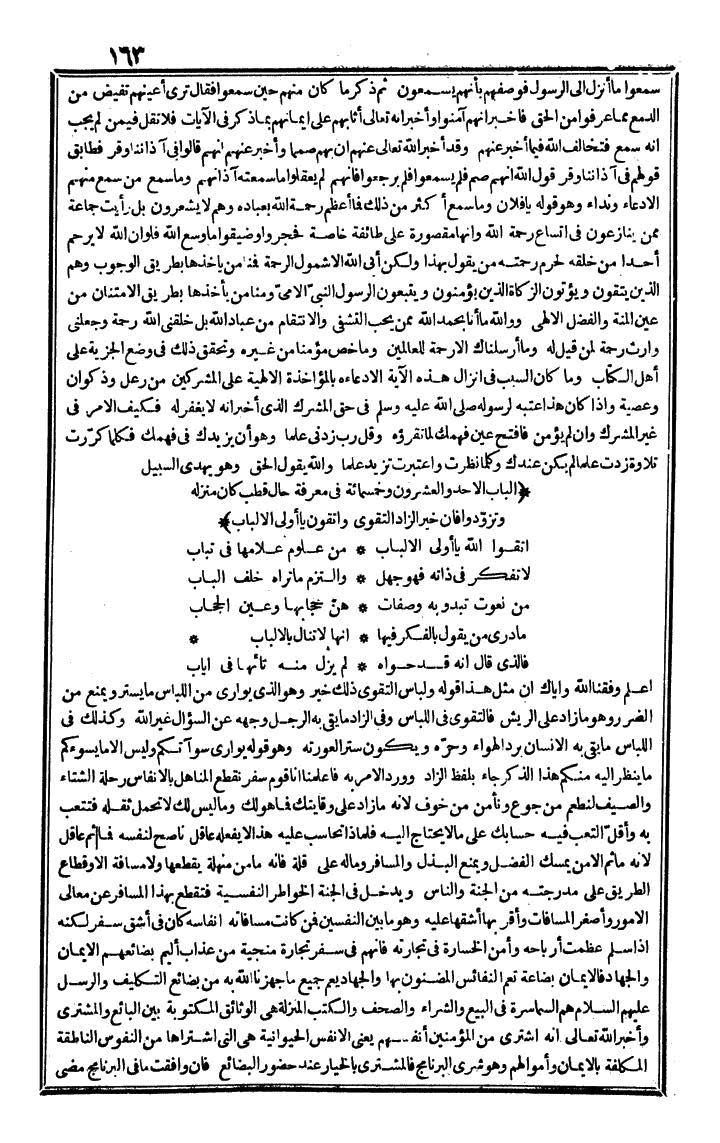 ١٦٣
سمعوا ما أنزل الى الرسول فوصفهم بأنهم يسمعون ثم ذكر ما كان منهم حين سمعوا فقال ترى أعينهم تفيض من
الدمع مما عرفوا من الحق فاخبر انهم آمنوا وأخبر انه تعالى أثابهم على ايمانهم بما ذكر فى الآيات فلا تقل فيمن لم يجب
انه سمع فتخالف الله فيما أخبر عنهم وقد أخبر الله تعالى عنهم ان بهم صمما وأخبر عنهم انهم قالوا فى آذاننا وقر فطابق
قولهم فى آذاننا وقر قول الله انهم صم فلم يسمعوا فلم يرجعوا فانهم لم يعقلوا ما سمعته آذانهم وما سمع من سمع منهم
الادعاء ونداء وهو قوله يا فلان وما سمع أكثر من ذلك فما أعظم رحمة الله بعباده وهم لا يشعرون بل رأيت جماعة
ممن ينازعون فى اتساع رحمة الله وانها مقصورة على طائفة خاصة فحجروا وضيقوا ما وسع الله فلو ان الله لا يرحم
أحدا من خلقه لحرم رحمته من يقول بهذا ولكن أبى الله الا شمول الرحمة فمنا من يأخذها بطريق الوجوب وهم
الذين يتقون ويؤتون الزكاة الذين يؤمنون ويتبعون الرسول النبىّ الامىّ ومنا من يأخذها بطريق الامتنان من
عين المنة والفضل الالهى ووالله ما أنا بحمد الله ممن يحب التشفى والانتقام من عباد الله بل خلقنى الله رحمة وجعلنى
وارث رحمة لمن قيل له وما أرسلناك الا رحمة للعالمين وما خص مؤمنا من غيره وتحقق ذلك فى وضع الجزية على
أهل الكتاب وما كان السبب فى انزال هذه الآية الادعاءه بالمؤاخذة الالهية على المشركين من رعل وذكوان
وعصية واذا كان هذا عتبه لرسوله صلى الله عليه وسلم فى حق المشرك الذى أخبر انه لا يغفر له فكيف الامر فى
غير المشرك وان لم يؤمن فافتح عين فهمك لما تقرؤه وقل رب زدنى علما وهو أن يزيدك فى فهمك فكلما كررت
تلاوة زدت علما لم يكن عندك وكلما نظرت واعتبرت تزيد علما والله يقول الحق وهو يهدى السبيل
﴿الباب الاحد والعشرون وخمسمائة فى معرفة حال قطب كان منزله
وتزوّدوا فان خير الزاد التقوى واتقون يا أولى الالباب﴾
اتقوا الله يا أولى الالباب * من علوم علامها فى تباب
لا تفكر فى ذاته فهو جهل * والتزم ما تراه خلف الباب
من نعوت تبدو به وصفات * هنّ حجابها وعين الحجاب
ما درى من يقول بالفكر فيها * انها لا تنال بالالباب *
فالذى قال انه قد حواه * لم يزل منه تائها فى اياب
اعلم وفقنا الله واياك ان مثل هذا قوله ولباس التقوى ذلك خير وهو الذى يوارى من اللباس ما يستر ويمنع من
الضرر وهو ما زاد على الريش فالتقوى فى اللباس وفى الزاد ما يقى به الرجل وجهه عن السؤال غير الله وكذلك فى
اللباس ما يقى به الانسان برد الهواء وحرّه ويكون ستر العورته وهو قوله يوارى سوآتكم وليس الا ما يسوءكم
ما ينظر اليه منكم هذا الذكر جاء بلفظ الزاد وورد الامر به فاعلمنا انا قوم سفر نقطع المناهل بالانفاس رحلة الشتاء
والصيف لنطعم من جوع ونأمن من خوف لانه ما زاد على وقايتك فما هو لك وما ليس لك لا تحمل ثقله فتتعب
به وأقل التعب فيه حسابك على ما لا يحتاج اليه فلماذا تحاسب عليه هذا لا يفعله عاقل ناصح لنفسه فما ثم عاقل
لانه ما ثم الا من يمسك الفضل ويمنع البذل والمسافر وماله على قلة فانه ما من منهلة يقطعها ولا مسافة الا وقطاع
الطريق على مدرجته من الجنة والناس ويدخل فى الجنة الخواطر النفسية فتقطع بهذا المسافر عن معالى
الامور وأصغر المسافات وأقربها أشقها عليه وهو ما بين النفسين فمن كانت مسافاته انفاسه كان فى أشق سفر لكنه
اذا سلم عظمت أرباحه وأمن الخسارة فى تجارته فانهم فى سفر تجارة منجية من عذاب أليم بضائعهم الايمان
والجهاد فالايمان بضاعة تعم النفائس المضنون بها والجهاد يعم جميع ما جهزنا الله به من بضائع التكليف والرسل
عليهم السلام هم السماسرة فى البيع والشراء والصحف والكتب المنزلة هى الوثائق المكتوبة بين البائع والمشترى
وأخبر الله تعالى انه اشترى من المؤمنين أنفسهم يعنى الانفس الحيوانية هى التى اشتراها من النفوس الناطقة
المكلفة بالايمان وأموالهم وهو شرى البرنامج فالمشترى بالخيار عند حضور البضائع فان وافقت ما فى البرنامج مضى